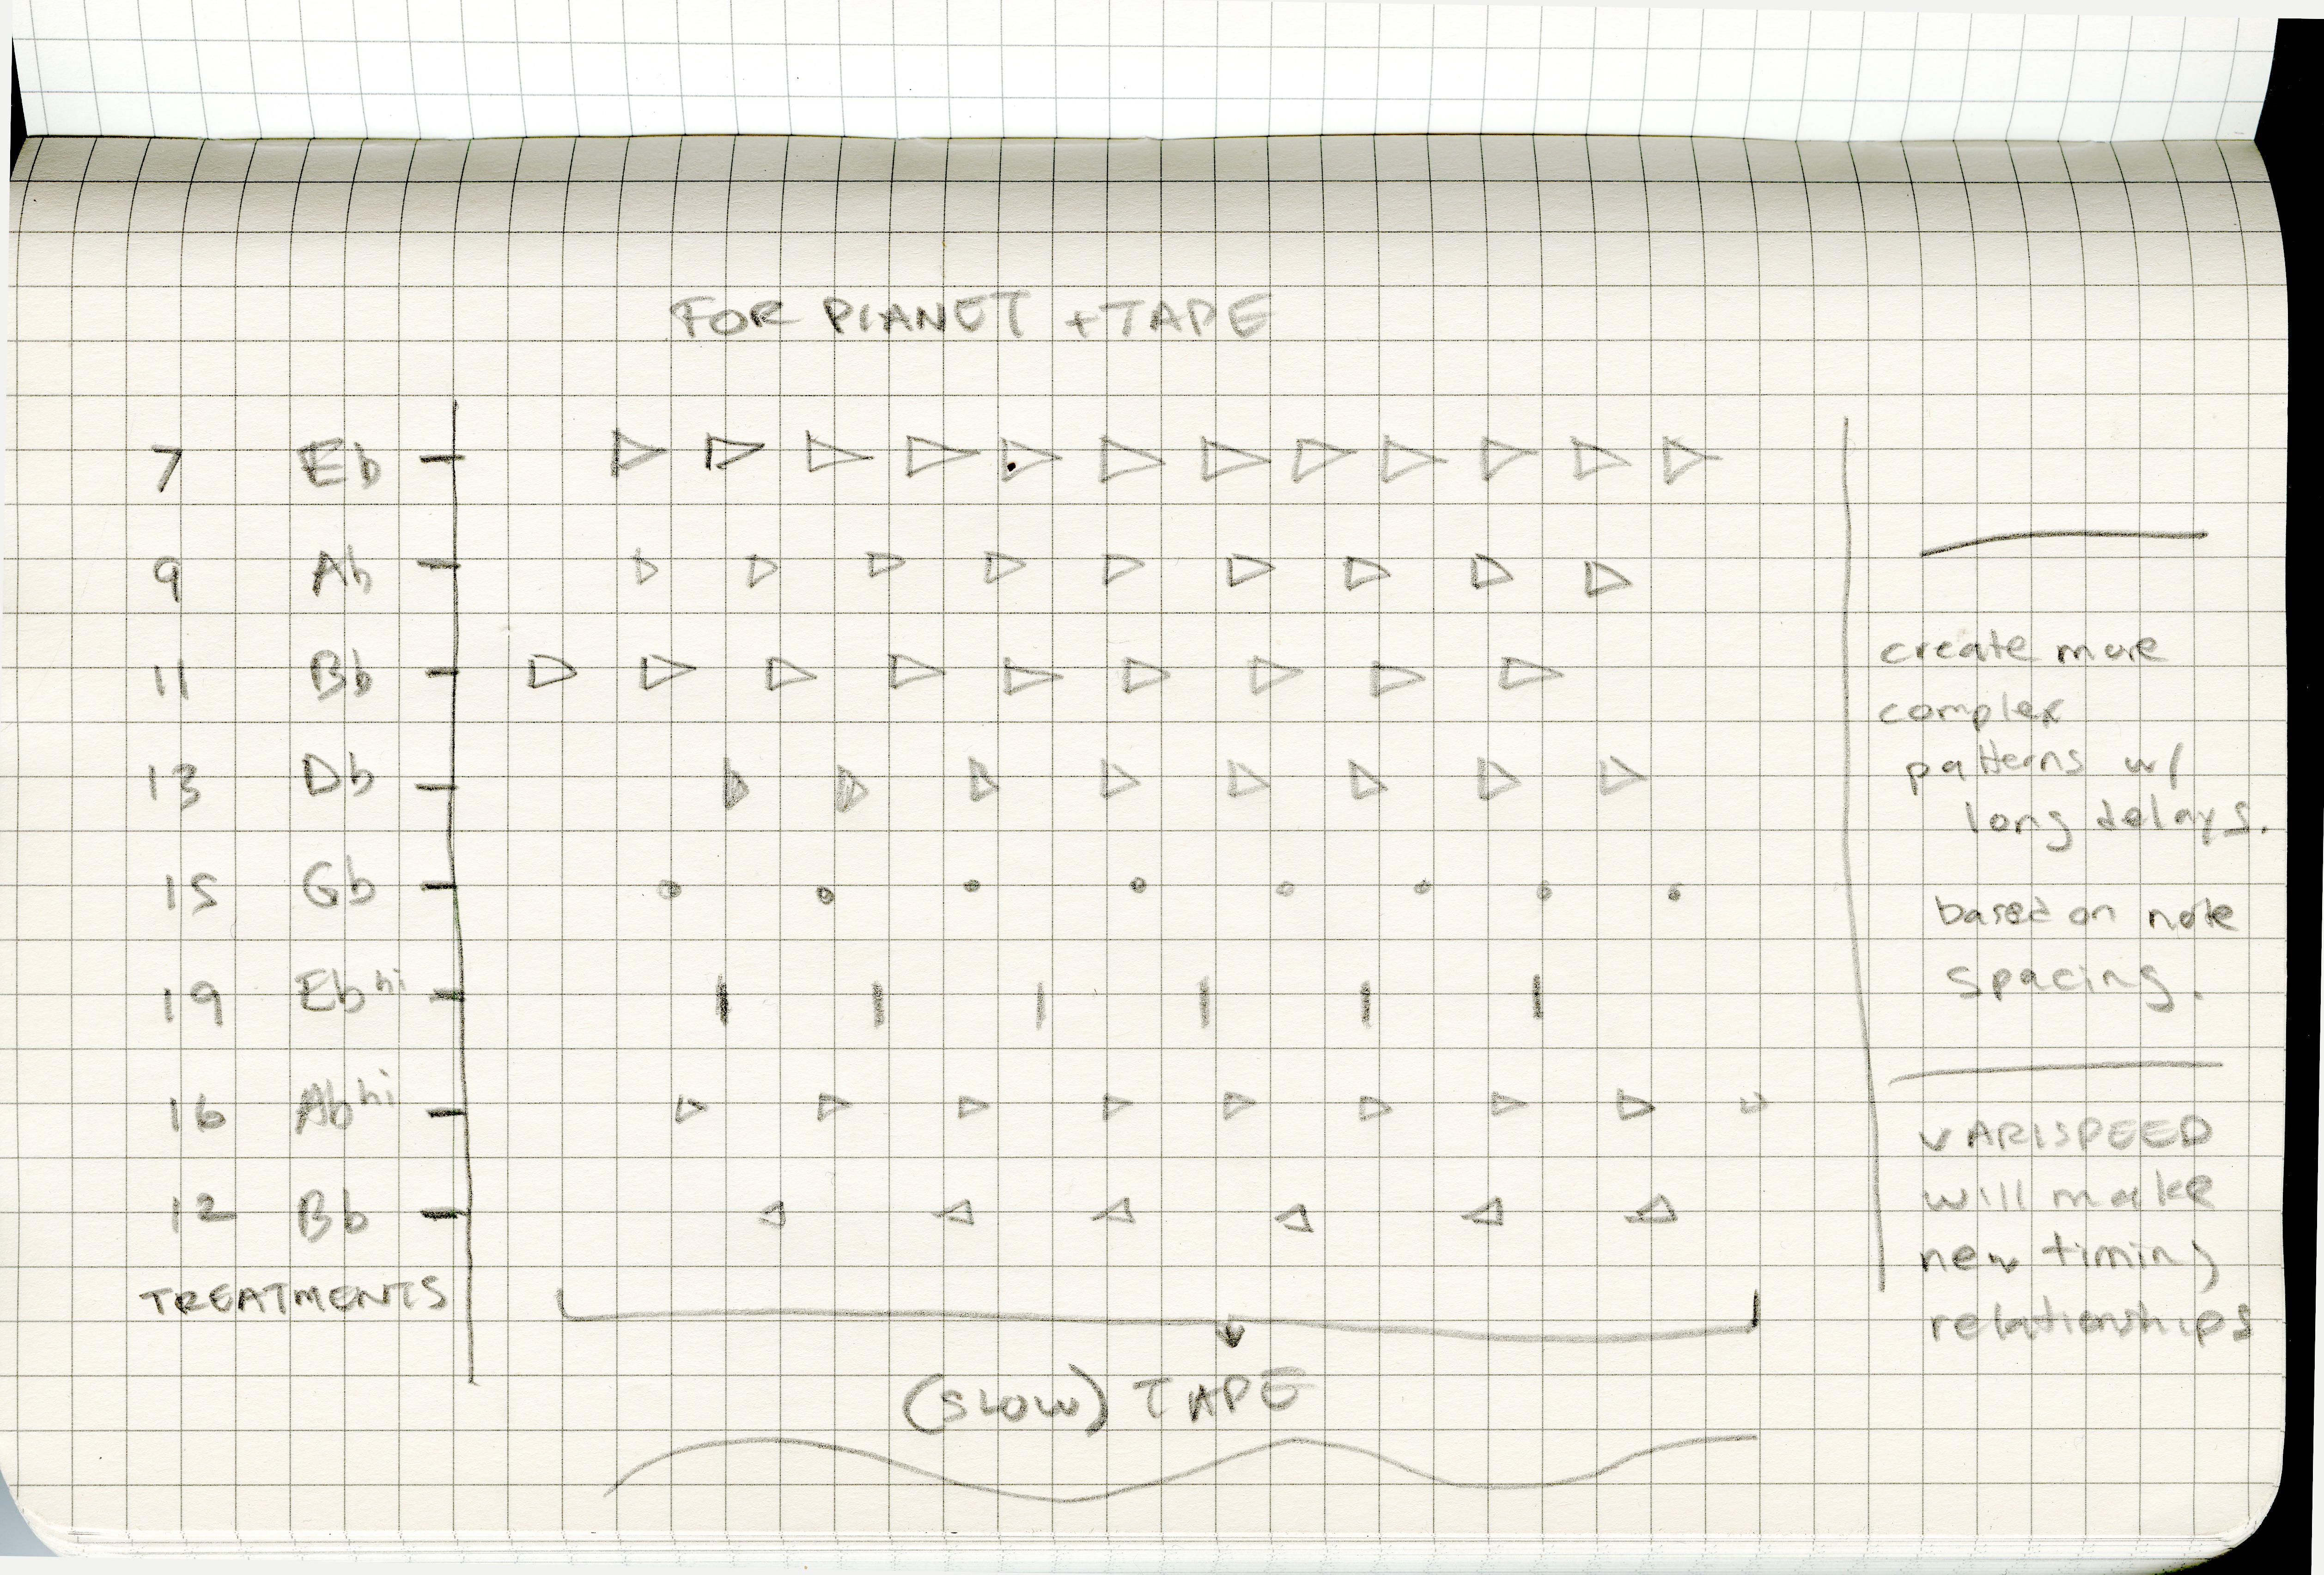 FOR PIANET + TAPE
7 Eb
9 Ab
11 Bb
13 Db
15 Gb
19 Eb hi
16 Ab hi
12 Bb
TREATMENTS
(SLOW) TAPE
create more
complex
patterns w/
long delays.
based on note
spacing.
VARISPEED
will make
new timing
relationships